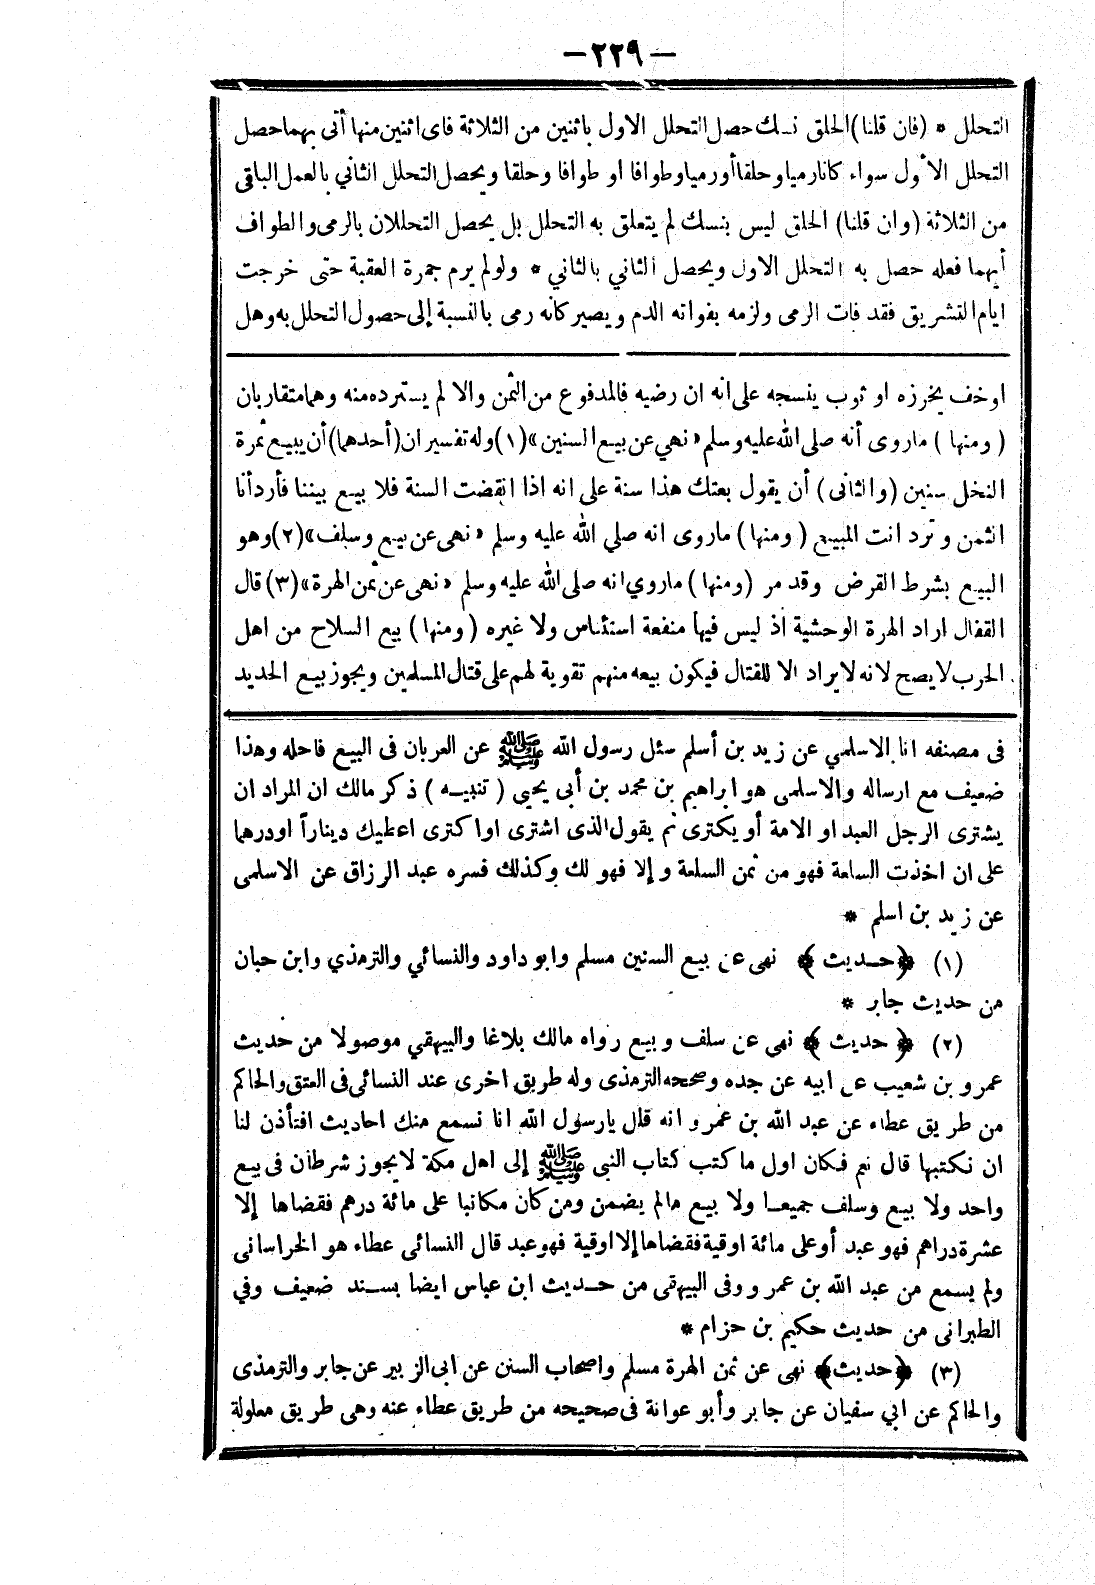 — ٢٢٩ —
التحلل * (فان قلنا) الحلق نسك حصل التحلل الاول باثنين من الثلاثة فاى اثنين منها أتى بهما حصل
التحلل الأول سواء كانا رميا وحلقا أو رميا وطوافا او طوافا وحلقا ويحصل التحلل الثاني بالعمل الباقى
من الثلاثة (وان قلنا) الحلق ليس بنسك لم يتعلق به التحلل بل يحصل التحللان بالرمى والطواف
أيهما فعله حصل به التحلل الاول ويحصل الثاني بالثاني * ولو لم يرم جمرة العقبة حتى خرجت
ايام التشريق فقد فات الرمى ولزمه بفواته الدم ويصير كانه رمى بالنسبة إلى حصول التحلل به وهل
او خف يخرزه او ثوب ينسجه على انه ان رضيه فالمدفوع من الثمن والا لم يسترده منه وهما متقاربان
(ومنها) ماروى أنه صلى الله عليه وسلم «نهي عن بيع السنين» (١) وله تفسيران (أحدهما) أن يبيع ثمرة
النخل سنين (والثانى) أن يقول بعتك هذا سنة على انه اذا انقضت السنة فلا بيع بيننا فأرد أنا
الثمن وترد انت المبيع (ومنها) ماروى انه صلي الله عليه وسلم «نهى عن بيع وسلف» (٢) وهو
البيع بشرط القرض وقد مر (ومنها) ماروي انه صلى الله عليه وسلم «نهى عن ثمن الهرة» (٣) قال
القفال اراد الهرة الوحشية اذ ليس فيها منفعة استئناس ولا غيره (ومنها) بيع السلاح من اهل
الحرب لا يصح لانه لا يراد الا للقتال فيكون بيعه منهم تقوية لهم على قتال المسلمين ويجوز بيع الحديد
فى مصنفه انا الاسلمي عن زيد بن أسلم سئل رسول الله ﷺ عن العربان فى البيع فاحله وهذا
ضعيف مع ارساله والاسلمى هو ابراهيم بن محمد بن أبى يحيى (تنبيه) ذكر مالك ان المراد ان
يشترى الرجل العبد او الامة أو يكترى ثم يقول الذى اشترى او اكترى اعطيك ديناراً او درهما
على ان اخذت السلعة فهو من ثمن السلعة وإلا فهو لك وكذلك فسره عبد الرزاق عن الاسلمى
عن زيد بن اسلم *
(١) ﴿حديث﴾ نهى عن بيع السنين مسلم وابو داود والنسائي والترمذي وابن حبان
من حديث جابر *
(٢) ﴿حديث﴾ نهى عن سلف وبيع رواه مالك بلاغا والبيهقي موصولا من حديث
عمرو بن شعيب عن ابيه عن جده وصححه الترمذى وله طريق اخرى عند النسائى فى العتق والحاكم
من طريق عطاء عن عبد الله بن عمرو انه قال يارسول الله انا نسمع منك احاديث افتأذن لنا
ان نكتبها قال نعم فكان اول ما كتب كتاب النبى ﷺ إلى اهل مكة لا يجوز شرطان فى بيع
واحد ولا بيع وسلف جميعا ولا بيع مالم يضمن ومن كان مكاتبا على مائة درهم فقضاها إلا
عشرة دراهم فهو عبد أو على مائة اوقية فقضاها إلا اوقية فهو عبد قال النسائى عطاء هو الخراسانى
ولم يسمع من عبد الله بن عمرو وفى البيهقى من حديث ابن عباس ايضا بسند ضعيف وفي
الطبرانى من حديث حكيم بن حزام *
(٣) ﴿حديث﴾ نهى عن ثمن الهرة مسلم واصحاب السنن عن ابى الزبير عن جابر والترمذى
والحاكم عن ابي سفيان عن جابر وأبو عوانة فى صحيحه من طريق عطاء عنه وهى طريق معلولة